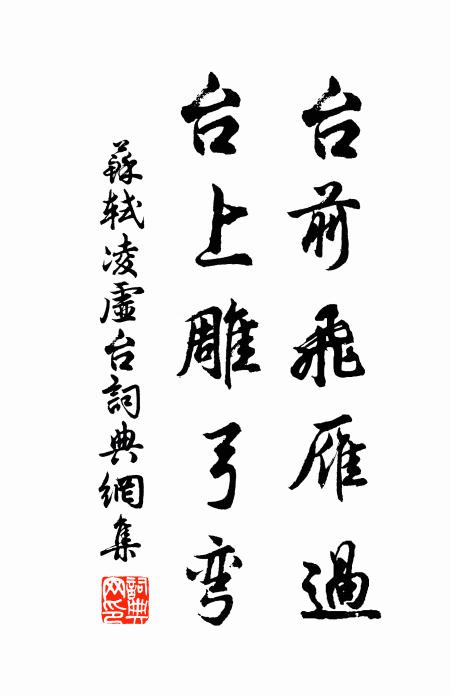 台前飛雁過
台上雕弓彎
蘇軾凌虛台詞典網集
詞典
网印